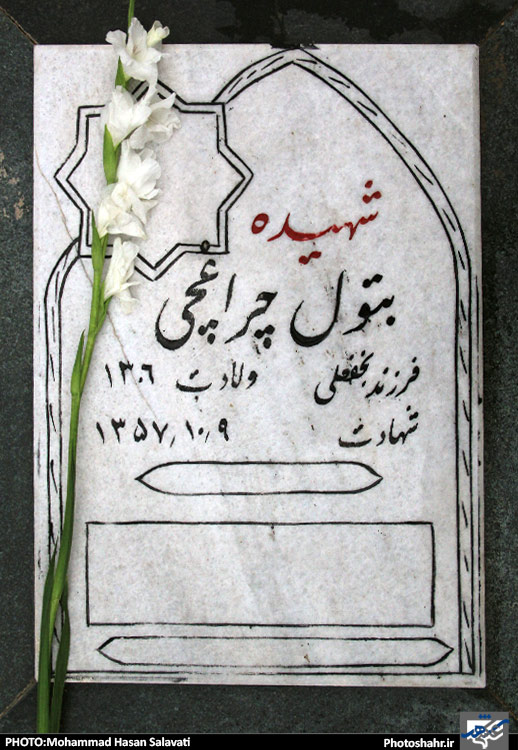 شهیده
بتول چراغچی
فرزند نجفعلی ولادت ۱۳۰۶
شهادت ۱۳۵۷٫۱۰٫۹
PHOTO:Mohammad Hasan Salavati
Photoshahr.ir